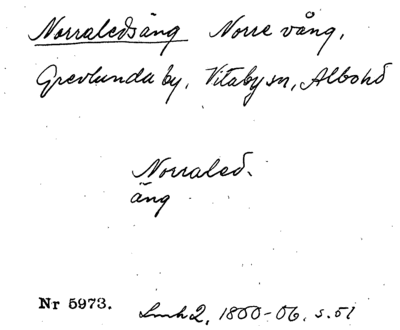 Norraledsäng Norre vång,
Grevlunda by, Vitaby sn, Albo hd
Norraled.
äng
Nr 5973. Lmh 2, 1800-06, s. 51